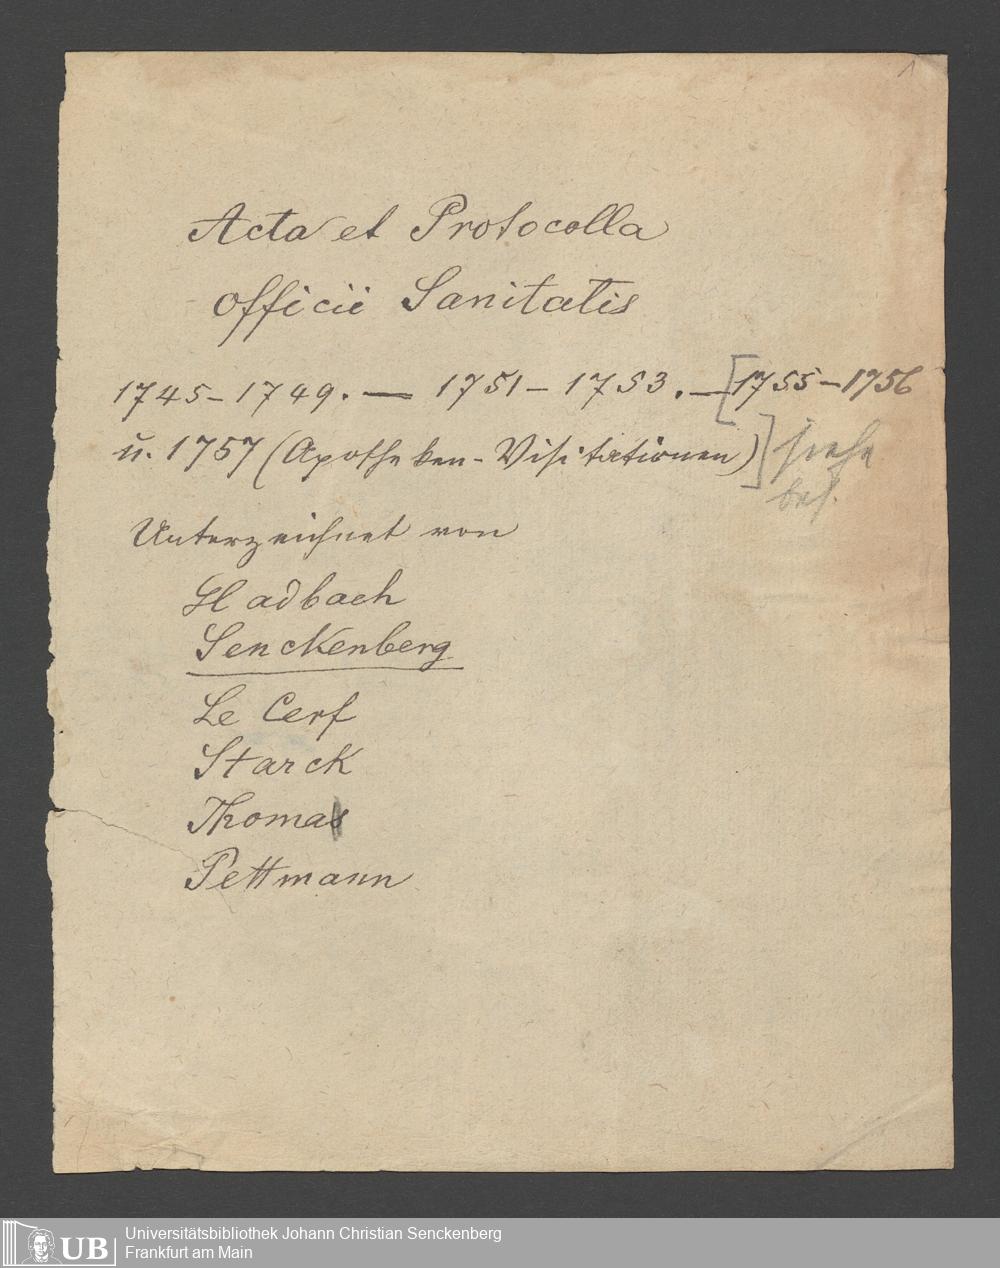 1
Acta et Protocolla
officii Sanitatis
1745-1749. — 1751-1753. — [1755-1756
u. 1757 (Apotheken-Visitationen)] siehe
bes.
Unterzeichnet von
Gladbach
Senckenberg
Le Cerf
Starck
Thomas
Pettmann
UB
Universitätsbibliothek Johann Christian Senckenberg
Frankfurt am Main